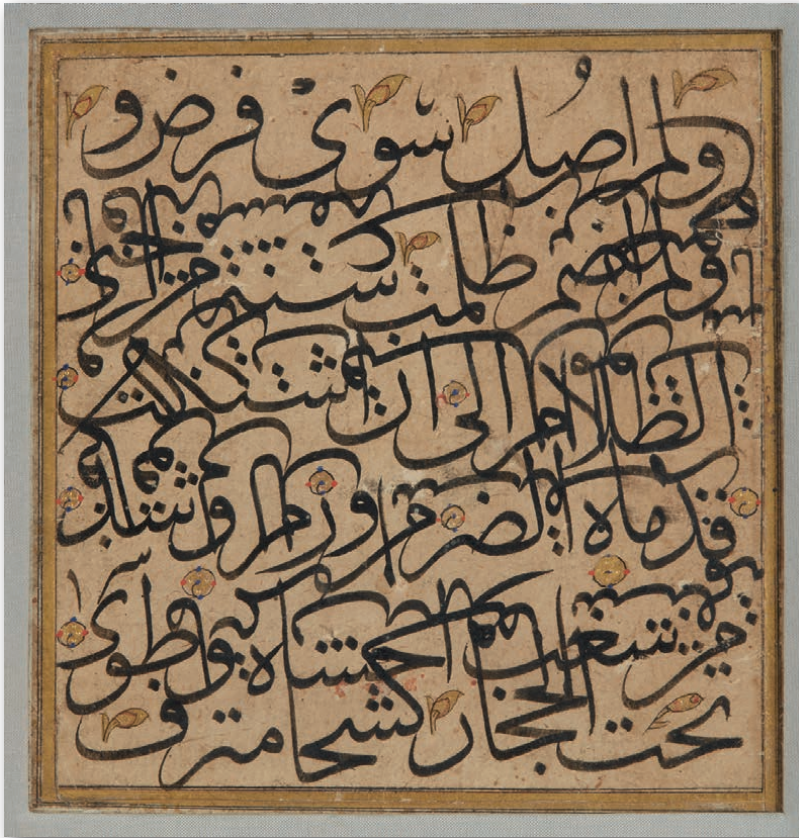 ولم اصل سوى فرض و
ولم اصم ظلمت سنة من احيى
الظلام الى ان اشتكت
قدماه الضر من ورم وشد
من سغب احشاه وطوى
تحت الحجارة كشحا مترف